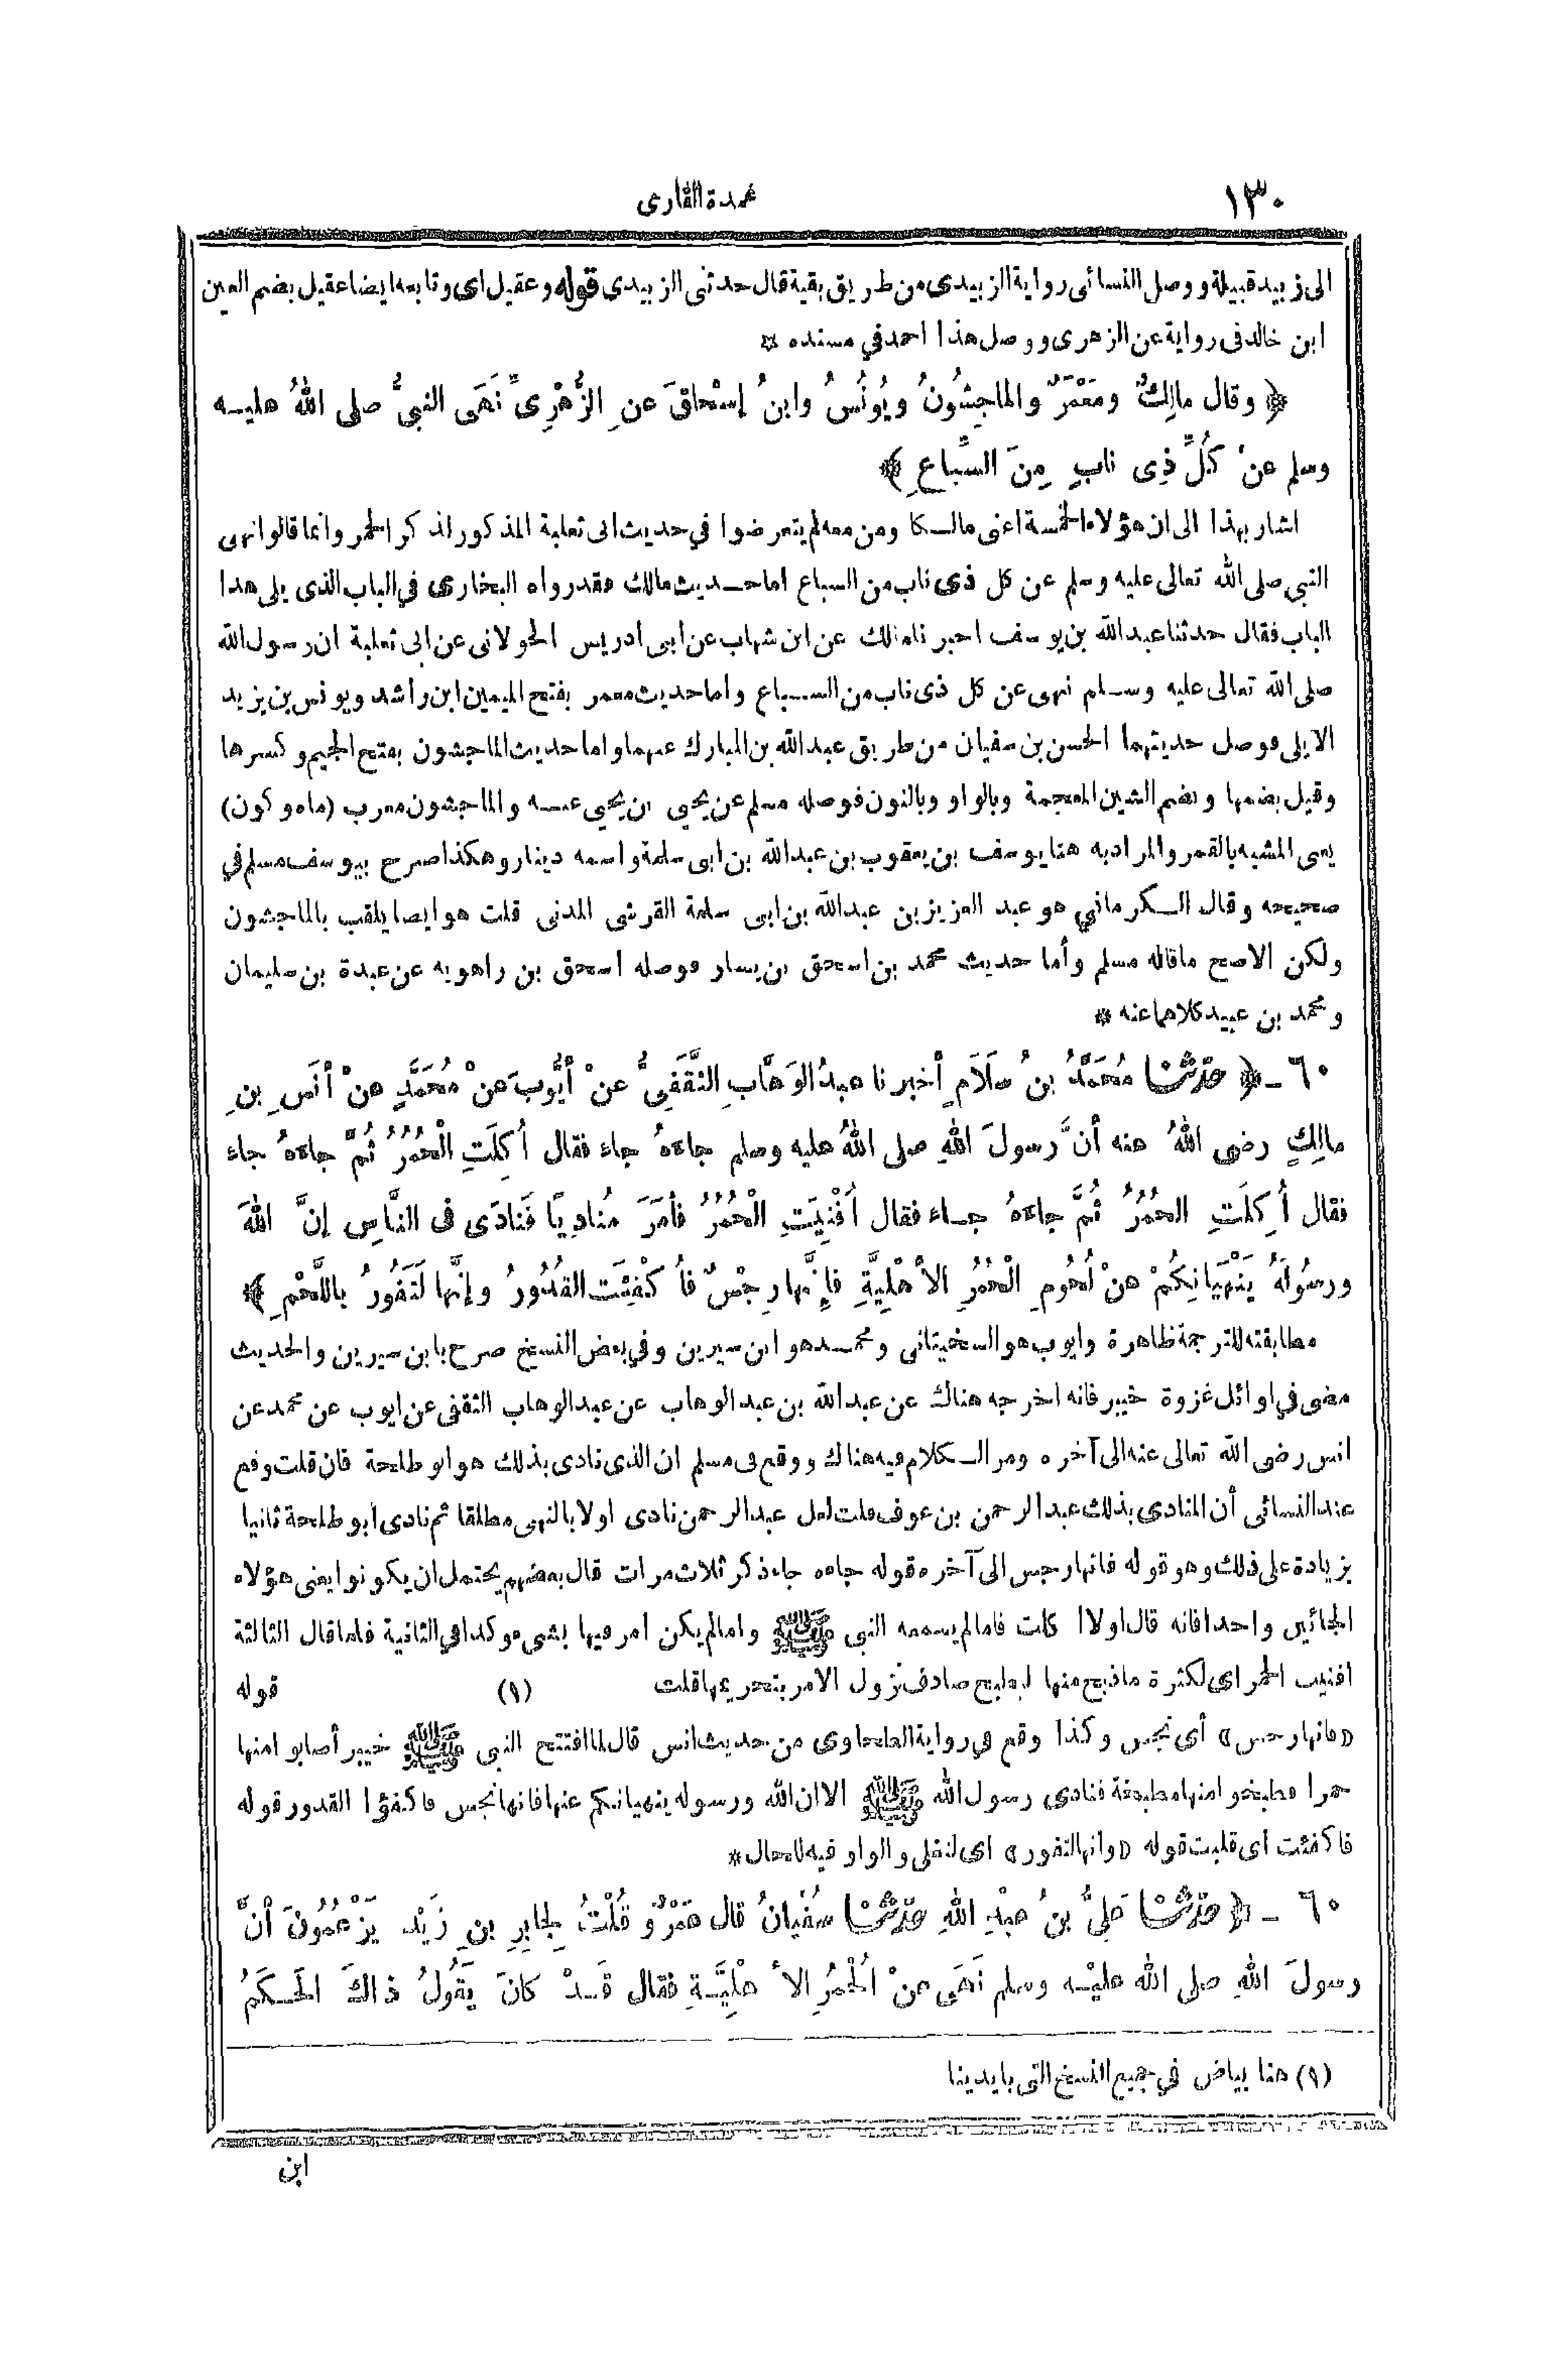 ١٣٠
عمدة القارى
الى زبيد قبيلة ووصل النسائى رواية الزبيدى من طريق بقية قال حدثنى الزبيدى قوله وعقيل اى وتابعه ايضا عقيل بضم العين
ابن خالد فى رواية عن الزهرى ووصل هذا احمد في مسنده *
﴿ وقال مالِكٌ ومَعْمَرٌ والماجِشُونُ ويُونُسُ وابنُ إسْحاقَ عنِ الزُّهْرِىِّ نَهَى النبيُّ صلى اللهُ عليــه
وسلم عنْ كُلِّ ذِى نابٍ مِنَ السِّباعِ ﴾
اشار بهذا الى ان هؤلاء الخمسة اعنى مالــكا ومن معه لم يتعرضوا في حديث ابى ثعلبة المذكور لذكر الحمر وانما قالوا نهى
النبى صلى الله تعالى عليه وسلم عن كل ذى ناب من السباع اما حــديث مالك فقد رواه البخارى في الباب الذى يلى هذا
الباب فقال حدثنا عبد الله بن يوسف اخبرنا مالك عن ابن شهاب عن ابى ادريس الخولانى عن ابى ثعلبة ان رسول الله
صلى الله تعالى عليه وســلم نهى عن كل ذى ناب من الســباع واما حديث معمر بفتح الميمين ابن راشد ويونس بن يزيد
الايلى فوصل حديثهما الحسن بن سفيان من طريق عبد الله بن المبارك عنهما واما حديث الماجشون بفتح الجيم وكسرها
وقيل بضمها وبضم الشين المعجمة وبالواو وبالنون فوصله مسلم عن يحيى بن يحيى عنــه والماجشون معرب (ماه وكون)
يعنى المشبه بالقمر والمراد به هنا يوسف بن يعقوب بن عبد الله بن ابى سلمة واسمه دينار وهكذا صرح بيوسف مسلم في
صحيحه وقال الــكرماني هو عبد العزيز بن عبد الله بن ابى سلمة القرشى المدنى قلت هو ايضا يلقب بالماجشون
ولكن الاصح ما قاله مسلم وأما حديث محمد بن اسحق بن يسار فوصله اسحق بن راهويه عن عبدة بن سليمان
ومحمد بن عبيد كلاهما عنه *
٦٠ ـ ﴿ حدّثنا مُحَمَّدُ بنُ سَلَامٍ أخبرنا عبدُ الوَهَّابِ الثَّقَفِىُّ عنْ أيُّوبَ عنْ مُحَمَّدٍ عنْ أنَسِ بنِ
مالِكٍ رضى اللهُ عنه أنَّ رسولَ اللهِ صلى اللهُ عليه وسلم جاءَهُ جاء فقال أُكِلَتِ الْحُمُرُ ثُمَّ جاءَهُ جاء
فقال أُكِلَتِ الحُمُرُ ثُمَّ جاءَهُ جــاء فقال أُفْنِيَتِ الْحُمُرُ فأمَرَ مُنادِيًا فَنادَى فى النَّاسِ إنَّ اللهَ
ورسُولَهُ يَنْهَيَانِكُمْ عنْ لُحُومِ الْحُمُرِ الأهْلِيَّةِ فإِنَّها رِجْسٌ فأُكْفِئَتِ القُدُورُ وإنَّها لَتَفُورُ باللَّحْمِ ﴾
مطابقته للترجمة ظاهرة وايوب هو السختيانى ومحمــد هو ابن سيرين وفي بعض النسخ صرح بابن سيرين والحديث
مضى في اوائل غزوة خيبر فانه اخرجه هناك عن عبد الله بن عبد الوهاب عن عبد الوهاب الثقفى عن ايوب عن محمد عن
انس رضى الله تعالى عنه الى آخره ومر الــكلام فيه هناك ووقع فى مسلم ان الذى نادى بذلك هو ابو طلحة فان قلت وقع
عند النسائى أن المنادى بذلك عبد الرحمن بن عوف قلت لعل عبد الرحمن نادى اولا بالنهى مطلقا ثم نادى ابو طلحة ثانيا
بزيادة على ذلك وهو قوله فانها رجس الى آخره قوله جاءه جاء ذكر ثلاث مرات قال بعضهم يحتمل ان يكونوا يعنى هؤلاء
الجائين واحدا فانه قال اولا اكلت فاما لم يسمعه النبى ﷺ واما لم يكن امر فيها بشىء وكذا في الثانية فلما قال الثالثة
افنيت الحمر اى لكثرة ما ذبح منها ليطبخ صادف نزول الامر بتحريمها قلت (١) قوله
«فانها رجس» أى نجس وكذا وقع في رواية الطحاوى من حديث انس قال لما افتتح النبى ﷺ خيبر أصابوا منها
حمرا فطبخوا منها مطبخة فنادى رسول الله ﷺ الا ان الله ورسوله ينهيانكم عنها فانها نجس فاكفؤا القدور قوله
فاكفئت اى قلبت قوله «وانها لتفور» اى لتغلى والواو فيه للحال *
٦٠ ـ ﴿ حدّثنا عَلِىُّ بنُ عبْدِ اللهِ حدّثنا سُفْيانُ قال عَمْرٌو قُلْتُ لِجابِرِ بنِ زَيْدٍ يَزْعُمُونَ أنَّ
رسولَ اللهِ صلى الله عليْــه وسلم نَهَى عنْ الْحُمُرِ الأهْلِيَّــةِ فقال قَــدْ كانَ يَقُولُ ذاكَ الحَــكَمُ
(١) هنا بياض في جميع النسخ التى بايدينا
ابن